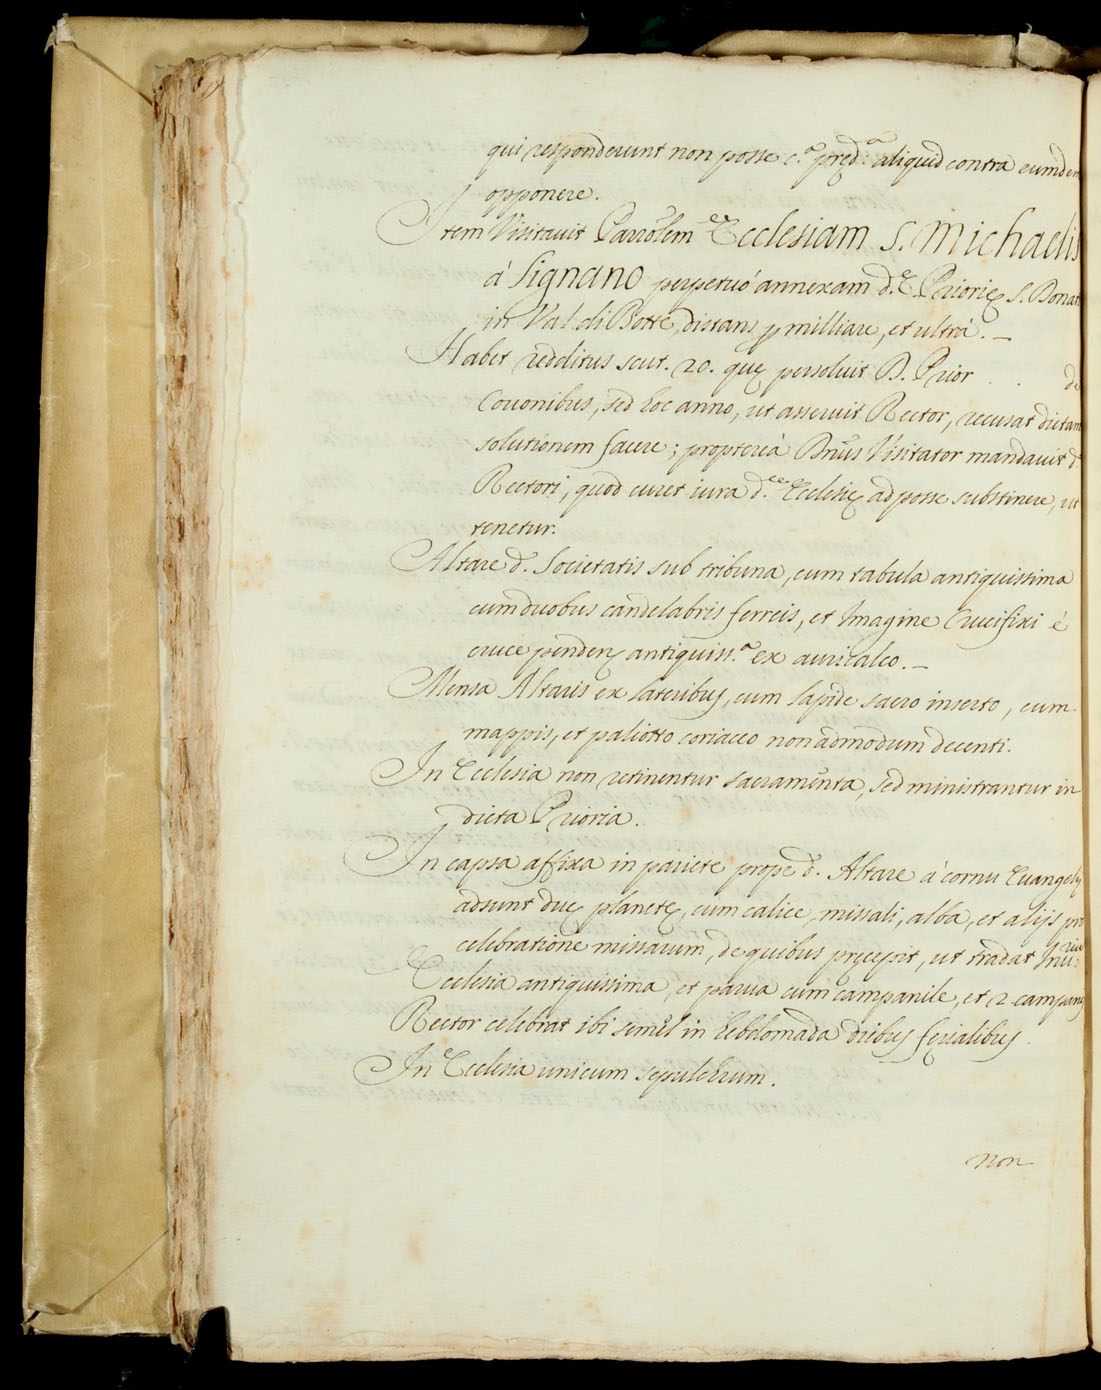 qui responderunt non posse c.ª pręd.ª aliquid contra eumdem
opponere.
Item Visitavit Parrolem Ecclesiam S. Michaelis
á Signano perpetuó annexam d. Priorię S. Donati
in Val di Botte, distans p milliare, et ultrá. _
Habet redditus scut. 20. quę persoluit D. Prior . . de
Couonibus, sed hoc anno, ut asseruit Rector, recusat dictam
solutionem facere; proptereà Dnus Visitator mandauit d.
Rectori, quod curet iura d.ce Ecclesię ad posse substinere, ut
tenetur.
Altare d. Societatis sub tribuna, cum tabula antiquissima
cum duobus candelabris ferreis, et Imagine Crucifixi é
cruce pendenς antiquiss.ª ex auricalco. _
Mensa Altaris ex lateribus, cum lapide sacro inserto, cum
mappis, et paliotto coriaceo non admodum decenti.
In Ecclesia non retinentur sacramenta, sed ministrantur in
dicta Prioria.
In capsa affixa in pariete prope d. Altare á cornu Euangelij
adsunt duę planetę, cum calice, missali, alba, et alijs pro
celebratione missarum, de quibus pręcepit, ut tradat Inu:
Ecclesia antiquissima, et parua cum campanile, et 2. campanis
Rector celebrat ibi semèl in hebdomada diebus ferialibus.
In Ecclesia unicum sepulchrum.
non